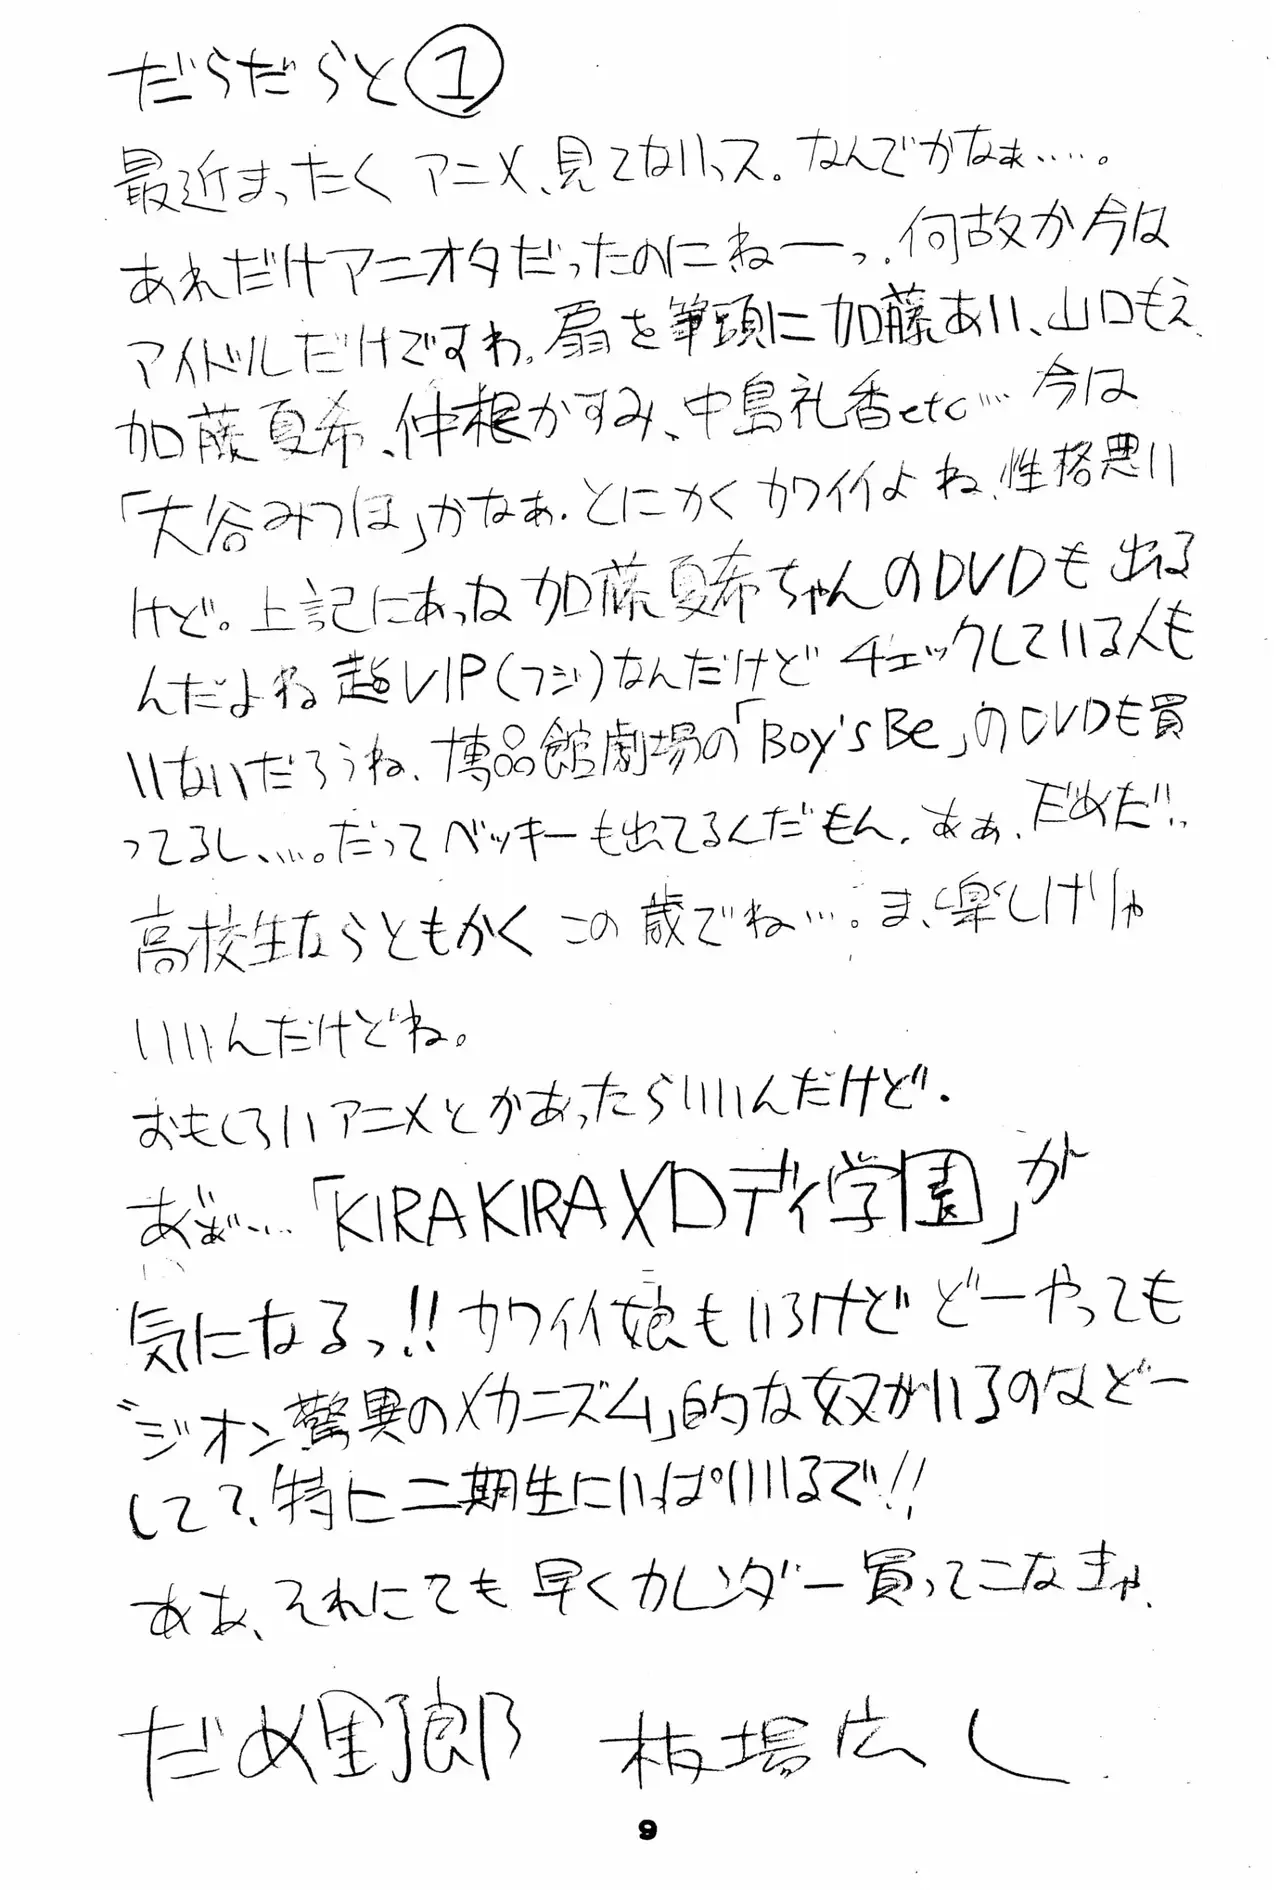 だらだらと①
最近まったくアニメ、見てないっス。なんでかなぁ……。
あれだけアニオタだったのにねーっ。何故か今は
アイドルだけですわ。扇を筆頭に加藤あい、山口もえ
加藤夏希、仲根かすみ、中島礼香etc…. 今は
「大谷みつほ」かなぁ.とにかくカワイイよね、性格悪い
けど。上記にあった加藤夏希ちゃんのDVDも出る
んだよね 超VIP(フジ)なんだけどチェックしている人も
いないだろうね、博品館劇場の「Boy'sBe」のDVDも買
ってるし、…。だってベッキーも出てるんだもん。あぁ、だめだ!!
高校生ならともかくこの歳でね…。ま、楽しけりゃ
いいんだけどね。
おもしろいアニメとかあったらいいんだけど.
あ゛ぁ゛…「KIRAKIRAXDディ学園」が
気になるっ!!カワイイ娘もいるけどどーやっても
"ジオン驚異のメカニズム」的な奴がいるのなどー
して?、特に二期生にいぱいいるで!!
ああ、それにても早くカレンダー買ってこなきゃ.
だめ野郎 板場広し
9